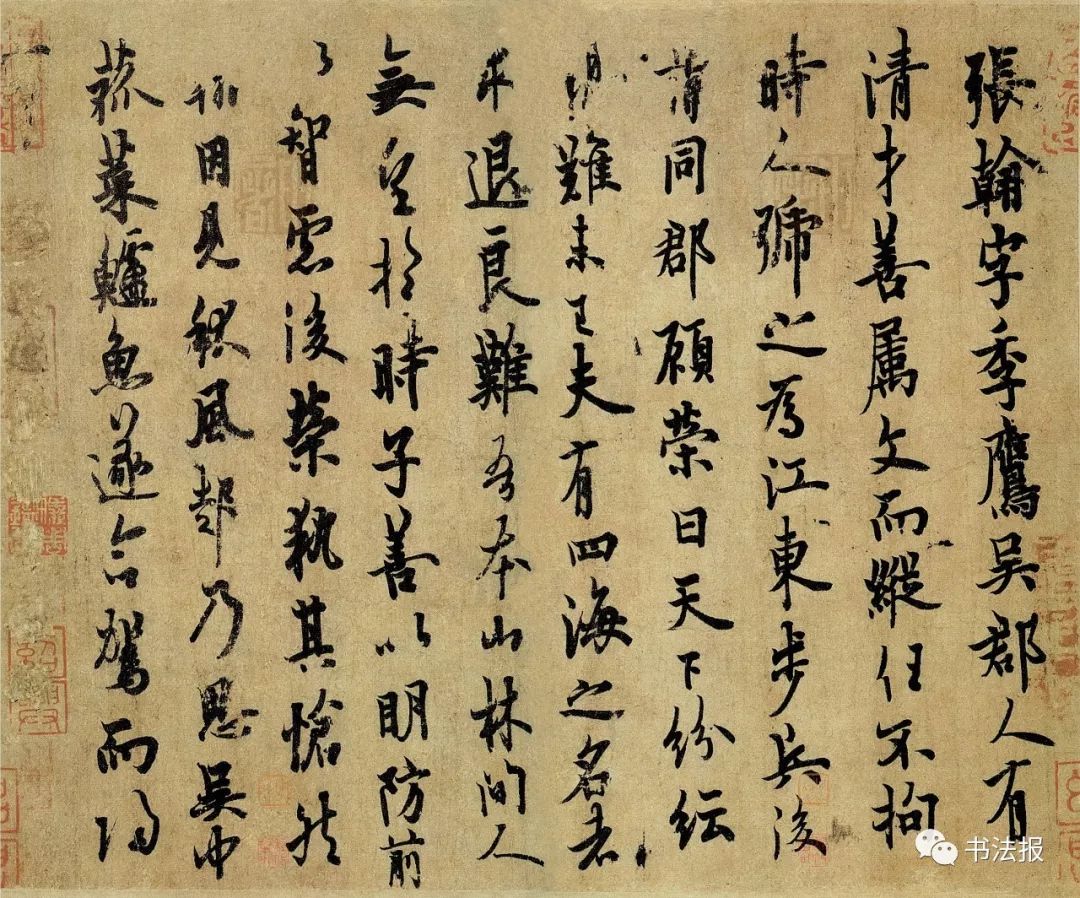 張翰字季鷹吳郡人有
清才善屬文而縱任不拘
時人號之為江東步兵後
謂同郡顧榮曰天下紛紜
難未已夫有四海之名者
求退良難吾本山林間人
無望於時子善以明防前
以智慮後榮執其愴然
翰因見秋風起乃思吳中
菰菜鱸魚遂命駕而歸
书法报